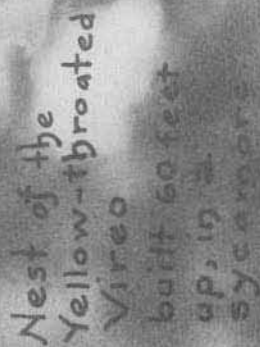 Nest of the
Yellow-throated
Vireo
built 60 feet
up, in a
sycamore